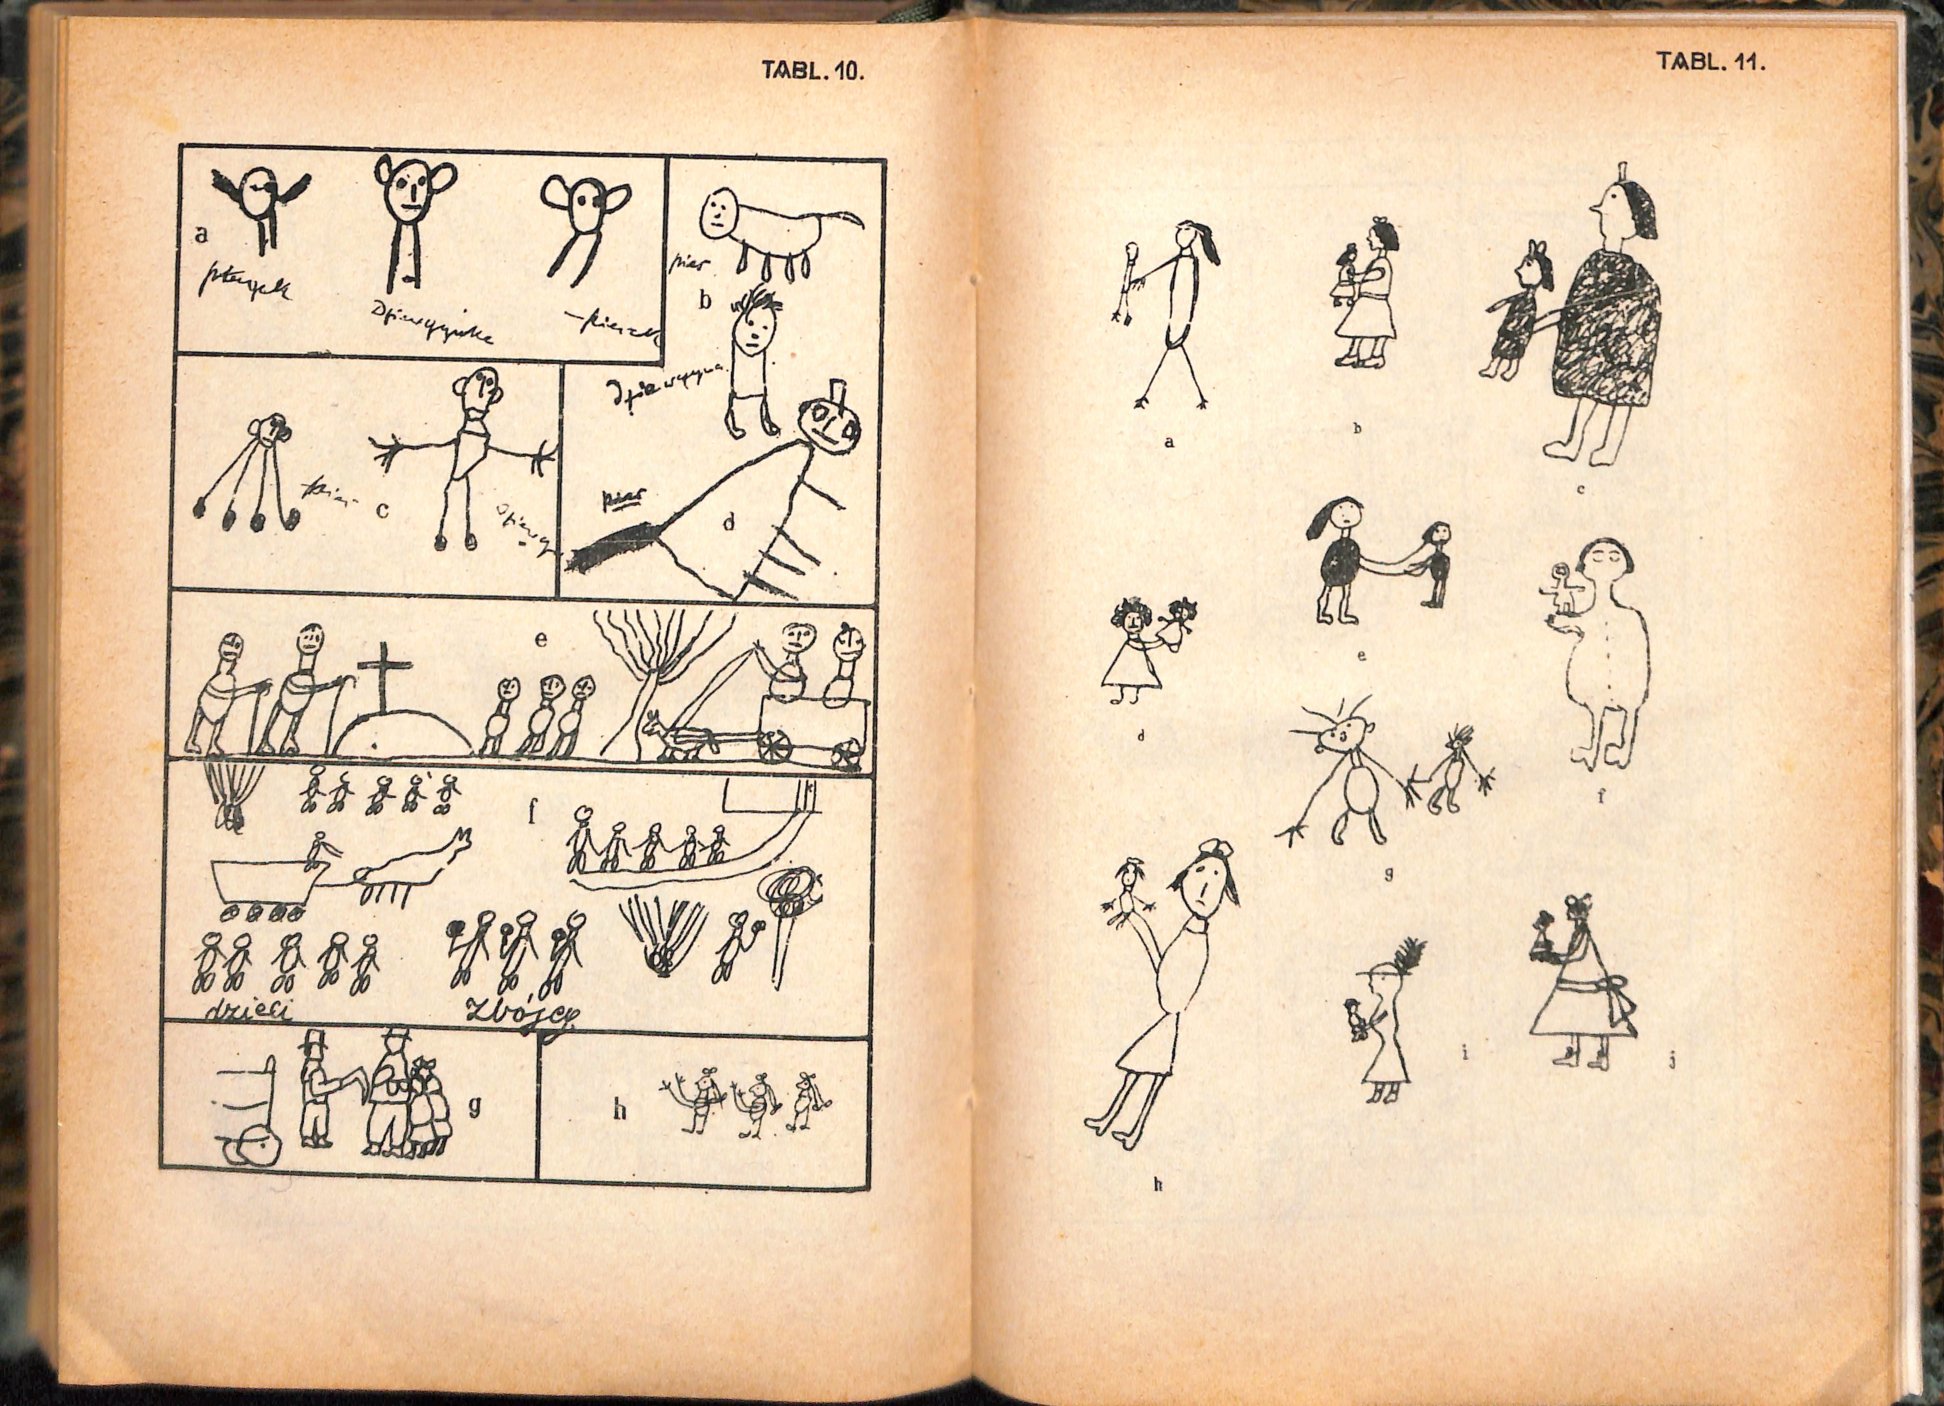 TABL. 10.
a
ptaszek
Dziewczynka
piesek
pies
b
Dziewczyna
pies
c
pies
d
e
f
dzieci
Zbójcy
g
h
TABL. 11.
a
b
c
d
e
f
g
h
i
j